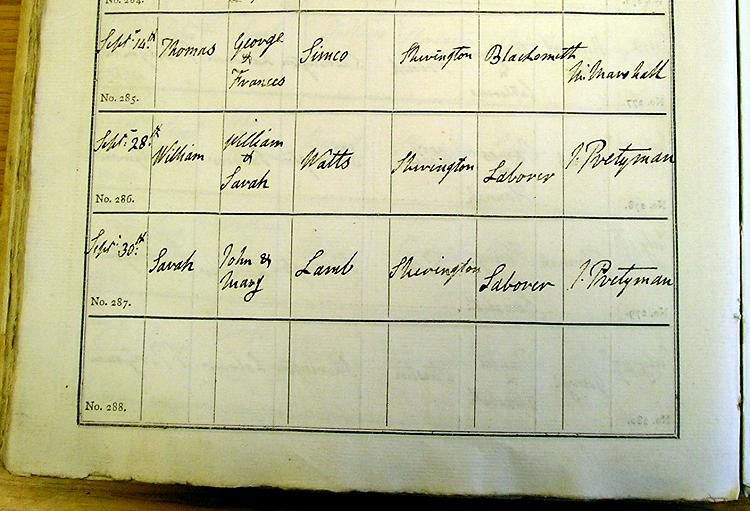 No. 284.
Septr 14th Thomas George & Frances Simco Sherington Blacksmith W. Marshall
No. 285.
Septr 28th William William & Sarah Watts Sherington Labourer J. Pretyman
No. 286.
Septr 30th Sarah John & Mary Lamb Sherington Labourer J. Pretyman
No. 287.
No. 288.